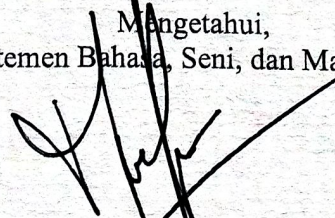 Mengetahui,
temen Bahasa, Seni, dan Ma